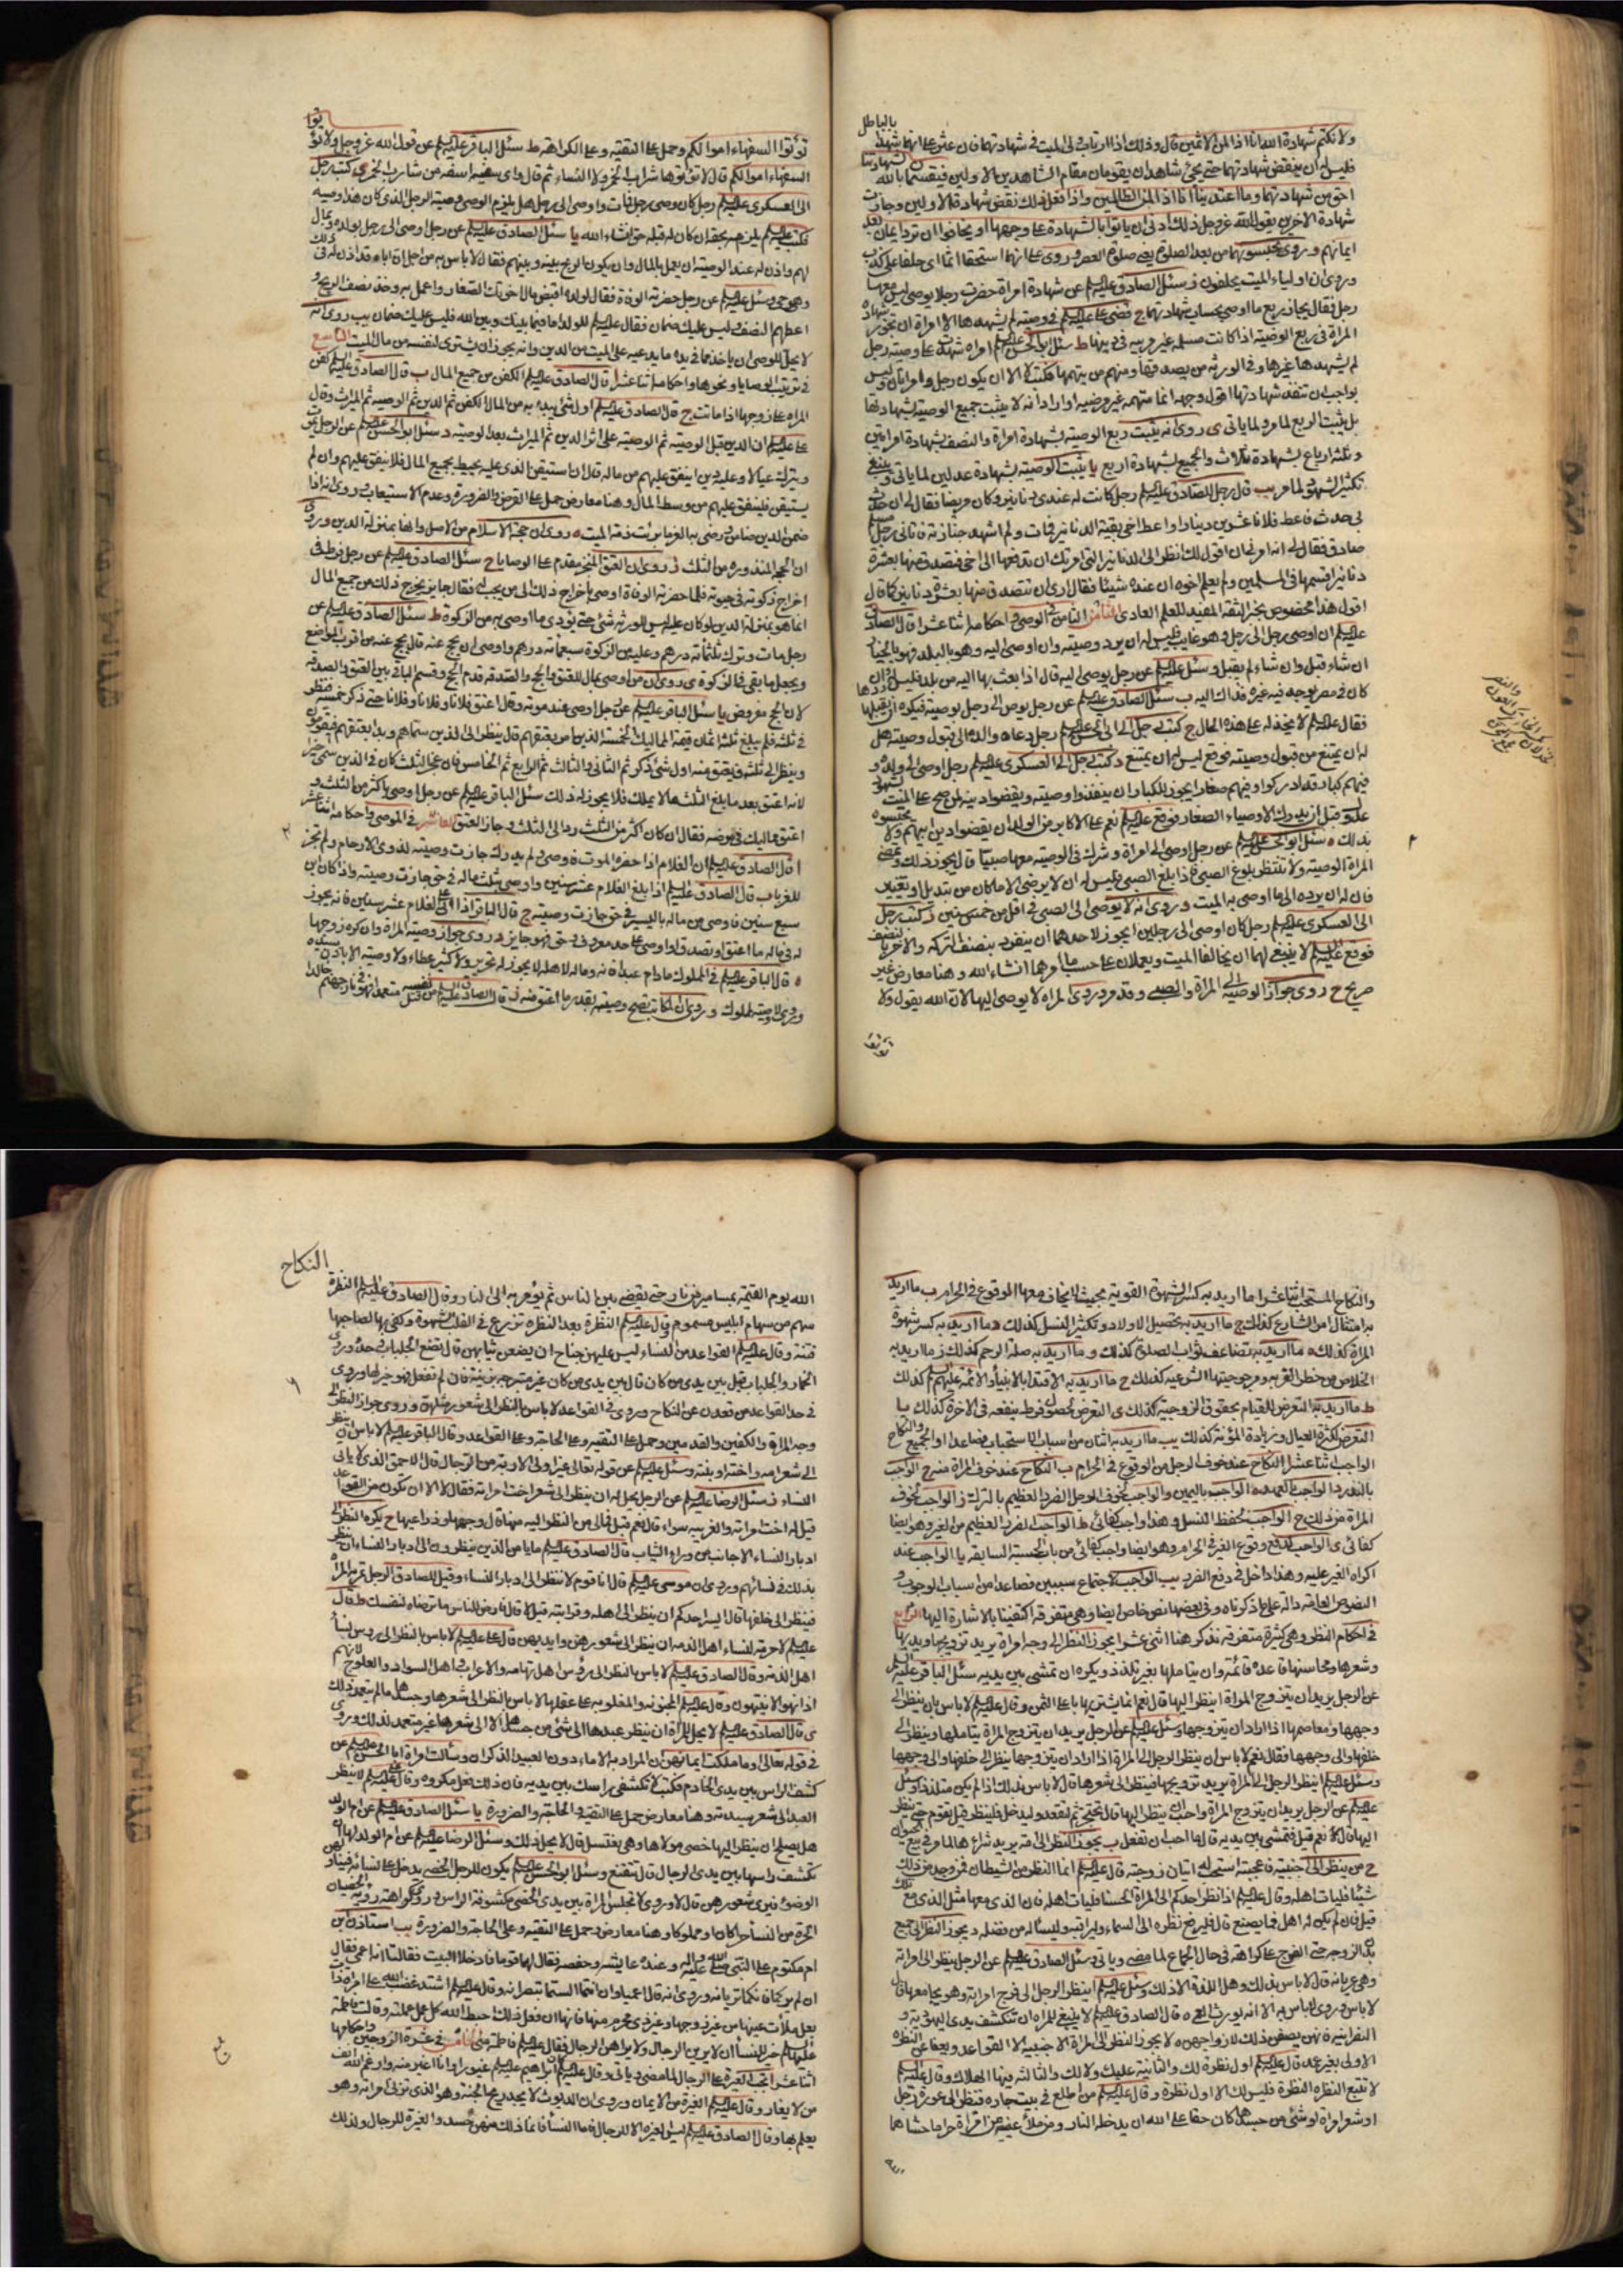 ولا نكتم شهادة الله انا اذا لمن الاثمين قال وذلك اذا ارتاب ولى الميت فى شهادتهما فان عثر على انهما شهدا
بالباطل
فليس له ان ينقض شهادتهما حتى يجئ شاهدان يقومان مقام الشاهدين الاولين فيقسمان بالله لشهادتنا
احق من شهادتهما وما اعتدينا انا اذا لمن الظالمين واذا فعل ذلك نقض شهادة الاولين وجازت
شهادة الاخرين يقول الله عزوجل ذلك ادنى ان ياتوا بالشهادة على وجهها او يخافوا ان ترد ايمان بعد
ايمانهم وروى تحبسونهما من بعد الصلوة يعنى صلوة العصر وروى على انهما استحقا اثما اى حلفا على كذب
وروى ان اولياء الميت يحلفون ز سئل الصادق عليه السلم عن شهادة امراة حضرت رجلا يوصى ليس معها
رجل فقال يجاز ربع ما اوصى بحساب شهادتها ح قضى على عليه السلم فى وصية لم يشهدها الا امراة ان تجوز شهادة
المراة فى ربع الوصية اذا كانت مسلمة غير مريبة فى دينها ط سئل ابو الحسن عليه السلم امراة شهدت على وصية رجل
لم يشهدها غيرها وفى الورثة من يصدقها ومنهم من يتهمها فكتب لا الا ان يكون رجل وامراتان وليس
بواجب ان تنفذ شهادتها اقول وجهه انها متهمة غير مرضية او اراد انه لا يثبت جميع الوصية بشهادتها
بل يثبت الربع لما مر ولما ياتى ى روى انه يثبت ربع الوصية بشهادة امراة والنصف بشهادة امراتين
وثلثة ارباع بشهادة ثلاث والجميع بشهادة اربع يا يثبت الوصية بشهادة عدلين لما ياتى وينبغى
تكثير الشهود لما مر يب قال رجل للصادق عليه السلم رجل كانت له عندى دنانير وكان مريضا فقال لى ان حدث
بى حدث فاعط فلانا عشرين دينارا واعط اخى بقية الدنانير فمات ولم اشهد جنازته فاتانى رجل مسلم
صادق فقال لى انه امرنى ان اقول لك انظر الى الدنانير التى امرتك ان تدفعها الى اخى فتصدق منها بعشرة
دنانير اقسمها فى المسلمين ولم يعلم اخوه ان عنده شيئا فقال ارى ان تتصدق منها بعشرة دنانير كما قال
اقول هذا مخصوص بخبر الثقة المفيد للعلم العادى الثامن فى الوصى واحكامه اثنا عشر ا قال الصادق
عليه السلم ان اوصى رجل الى رجل وهو غايب فليس له ان يرد وصيته وان اوصى اليه وهو بالبلد فهو بالخيار
ان شاء قبل وان شاء لم يقبل وسئل عليه السلم عن رجل يوصى اليه قال اذا بعث بها اليه من بلد فليس له ردها وان
كان فى مصر يوجد فيه غيره فذاك اليه ب سئل الصادق عليه السلم عن رجل يوصى الى رجل بوصية فيكره ان يقبلها
فقال عليه السلم لا يخذله على هذه الحال ج كتب رجل الى ابى الحسن عليه السلم رجل دعاه والده الى قبول وصيته هل
له ان يمتنع من قبول وصيته فوقع ليس له ان يمتنع د كتب رجل الى العسكرى عليه السلم رجل اوصى الى ولده و
فيهم كبار قد ادركوا وفيهم صغار ايجوز للكبار ان ينفذوا وصيته ويقضوا دينه لمن صح على الميت بشهود
عدول قبل ان يدرك الاوصياء الصغار فوقع عليه السلم نعم على الاكابر من الولد ان يقضوا دين ابيهم ولا يحبسوه
بذلك ه سئل ابو الحسن عليه السلم عن رجل اوصى الى امراة وشرك فى الوصية معها صبيا قال يجوز ذلك وتمضى
المراة الوصية ولا تنتظر بلوغ الصبى فاذا بلغ الصبى فليس له ان لا يرضى الا ما كان من تبديل او تغيير
فان له ان يرده الى ما اوصى به الميت و روى انه لا يوصى الى الصبى فى اقل من خمس سنين ز كتب رجل
الى العسكرى عليه السلم رجل كان اوصى الى رجلين ايجوز لاحدهما ان ينفرد بنصف التركة والاخر بالنصف
فوقع عليه السلم لا ينبغى لهما ان يخالفا الميت ويعملان على حسب ما امرهما انشاء الله وهنا معارض غير
صريح ح روى جواز الوصية الى المراة والصبى وقد مر وروى المراة لا يوصى اليها لان الله يقول ولا
تؤتوا
تؤتوا السفهاء اموالكم وحمل على التقية وعلى الكراهة ط سئل الباقر عليه السلم عن قول الله عزوجل ولا تؤتوا
السفهاء اموالكم قال لا تؤتوها شراب الخمر ولا النساء ثم قال واى سفيه اسفه من شارب الخمر ى كتب رجل
الى العسكرى عليه السلم رجل كان وصى رجل فمات واوصى الى رجل هل يلزم الوصى وصية الرجل الذى كان هذا وصيه
فكتب عليه السلم يلزمه بحقه ان كان له قبله حق انشاء الله يا سئل الصادق عليه السلم عن رجل اوصى الى رجل بولده وبمال
لهم واذن له عند الوصية ان يعمل بالمال وان يكون الربح بينه وبينهم فقال لا باس به من اجل ان اباه قد اذن له فى ذلك
وهو حى وسئل عليه السلم عن رجل حضرته الوفاة فقال لولده اقبض مال اخوتك الصغار واعمل به وخذ نصف الربح و
اعطهم النصف وليس عليك ضمان فقال عليه السلم للولد اما فيما بينك وبين الله فليس عليك ضمان يب روى انه
لا يحل للوصى ان ياخذ مما فى يده ما يدعيه على الميت من الدين وانه يجوز ان يشترى لنفسه من مال الميت التاسع
فى ترتيب الوصايا ونحوها واحكامه اثنا عشر ا قال الصادق عليه السلم الكفن من جميع المال ب قال الصادق عليه السلم كفن
المراة على زوجها اذا ماتت ج قال الصادق عليه السلم اول شئ يبدء به من المال الكفن ثم الدين ثم الوصية ثم الميراث وقال
على عليه السلم ان الدين قبل الوصية ثم الوصية على اثر الدين ثم الميراث بعد الوصية د سئل ابو الحسن عليه السلم عن الرجل يموت
ويترك عيالا وعليه دين اينفق عليهم من ماله قال ان استيقن ان الذى عليه يحيط بجميع المال فلا ينفق عليهم وان لم
يستيقن فلينفق عليهم من وسط المال وهنا معارض حمل على القرض والضرورة وعدم الاستيعاب وروى انه اذا
ضمن الدين ضامن ورضى به الغرما برئت ذمة الميت ه روى ان حجة الاسلام من الاصل وانها بمنزلة الدين وروى
ان الحجة المنذورة من الثلث ز روى ان العتق المنجز يقدم على الوصايا ح سئل الصادق عليه السلم عن رجل فرط فى
اخراج زكوته فى حيوته فلما حضرته الوفاة اوصى باخراج ذلك الى من يجب له فقال جايز يخرج ذلك من جميع المال
انما هو بمنزلة الدين لو كان عليه ليس للورثة شئ حتى يؤدى ما اوصى به من الزكوة ط سئل الصادق عليه السلم عن
رجل مات وترك ثلثمائة درهم وعليه من الزكوة سبعمائة درهم واوصى ان يحج عنه قال يحج عنه من اقرب المواضع
ويجعل ما بقى فى الزكوة ى روى ان من اوصى بمال للعتق والحج والصدقة قدم الحج وقسم الباقى بين العتق والصدقة
لان الحج مفروض يا سئل الباقر عليه السلم عن رجل اوصى عند موته وقال اعتق فلانا وفلانا وفلانا حتى ذكر خمسة فنظر
فى ثلثه فلم يبلغ ثلثه اثمان قيمة المماليك الخمسة الذين امر بعتقهم قال ينظر الى الذين سماهم وبدا بعتقهم فيقومون
وينظر الى ثلثه فيعتق منه اول شئ ذكر ثم الثانى والثالث ثم الرابع ثم الخامس فان عجز الثلث كان فى الذين سمى اخيرا
لانه اعتق بعد ما بلغ الثلث ما لا يملك فلا يجوز له ذلك سئل الباقر عليه السلم عن رجل اوصى باكثر من الثلث و
اعتق مماليك فى مرضه فقال ان كان اكثر من الثلث رد الى الثلث وجاز العتق العاشر فى الموصى واحكامه اثنا عشر
ا قال الصادق عليه السلم ان الغلام اذا حضره الموت فاوصى ولم يدرك جازت وصيته لذوى الارحام ولم تجز
للغرباء ب قال الصادق عليه السلم اذا بلغ الغلام عشر سنين واوصى بثلث ماله فى حق جازت وصيته واذا كان ابن
سبع سنين فاوصى من ماله باليسير فى حق جازت وصيته ج قال الباقر عليه السلم اذا اتى على الغلام عشر سنين فانه يجوز
له فى ماله ما اعتق او تصدق او اوصى على حد معروف وحق فهو جايز د روى جواز وصية المراة وان كره زوجها
ه قال الباقر عليه السلم فى المملوك ما دام عبدا فانه وماله لاهله لا يجوز له تحرير ولا كثير عطاء ولا وصية الا باذن سيده
وروى لا وصية لمملوك و روى ان المكاتب تصح وصيته بقدر ما اعتق منه ز قال الصادق عليه السلم من قتل نفسه متعمدا فهو فى نار جهنم خالدا
والنكاح المستحب اثنا عشر ا ما اريد به كسر الشهوة القوية بحيث لا يخاف معها الوقوع فى الحرام ب ما اريد
به امتثال امر الشارع كذلك ج ما اريد به تحصيل الاولاد وتكثير النسل كذلك د ما اريد به كسر شهوة
المراة كذلك ه ما اريد به تضاعف ثواب الصلوة كذلك و ما اريد به صلة الرحم كذلك ز ما اريد به
الخلاص من خطر العزبة ومرجوحيتها الشرعية كذلك ح ما اريد به الاقتداء بالانبياء والائمة عليهم السلم كذلك
ط ما اريد به التعرض للقيام بحقوق الزوجية كذلك ى التعرض لحصول فرط ينفعه فى الاخرة كذلك يا
التعرض لكثرة العيال وزيادة المؤنة كذلك يب ما اريد به اثنان من اسباب الاستحباب فصاعدا او الجميع والنكاح
الواجب اثنا عشر ا النكاح عند خوف الرجل من الوقوع فى الحرام ب النكاح عند خوف المراة منه ج الواجب
بالنذر د الواجب بالعهد ه الواجب باليمين و الواجب لخوف الرجل الضرر العظيم بالترك ز الواجب لخوف
المراة من ذلك ح الواجب لحفظ النسل وهذا واجب كفائى ط الواجب لدفع الضرر العظيم من الغير وهو ايضا
كفائى ى الواجب لدفع وقوع الغير فى الحرام وهو ايضا واجب كفائى من باب الحسبة السابقة يا الواجب عند
اكراه الغير عليه وهذا داخل فى دفع الضرر يب الواجب لاجتماع سببين فصاعدا من اسباب الوجوب و
النصوص العامة دالة على ما ذكرناه وفى بعضها نص خاص ايضا وهى متفرقة اكتفينا بالاشارة اليها الرابع
فى احكام النظر وهى كثيرة متفرقة نذكر هنا اثنى عشر ا يجوز النظر الى وجه امراة يريد تزويجها ويديها
وشعرها ومحاسنها قاعدة قائمة وان يتاملها بغير تلذذ ويكره ان تمشى بين يديه سئل الباقر عليه السلم
عن الرجل يريد ان يتزوج المراة اينظر اليها قال نعم انما يشتريها باغلى الثمن وقال عليه السلم لا باس بان ينظر الى
وجهها ومعاصمها اذا اراد ان يتزوجها وسئل عليه السلم عن الرجل يريد ان يتزوج المراة يتاملها وينظر الى
خلفها والى وجهها فقال نعم لا باس ان ينظر الرجل الى المراة اذا اراد ان يتزوجها ينظر الى خلفها والى وجهها
وسئل عليه السلم اينظر الرجل الى المراة يريد تزويجها فينظر الى شعرها قال لا باس بذلك اذا لم يكن متلذذا وسئل
عليه السلم عن الرجل يريد ان يتزوج المراة واحب ان ينظر اليها قال تحتجز ثم لتقعد وليدخل فلينظر قيل تقوم حتى ينظر
اليها قال نعم قيل فتمشى بين يديه قال ما احب ان تفعل ب يجوز النظر الى امة يريد شراءها لما مر فى بيع الحيوان
ج من ينظر الى اجنبية فاعجبته استحب له اتيان زوجته قال عليه السلم انما النظر من الشيطان فمن وجد من ذلك
شيئا فليات اهله وقال عليه السلم اذا نظر احدكم الى المراة الحسنا فليات اهله فان الذى معها مثل الذى مع تلك
قيل فان لم يكن له اهل فما يصنع قال فليرفع نظره الى السماء وليراقبه وليساله من فضله د يجوز النظر الى جميع
بدن الزوجة حتى الفرج على كراهة فى حال الجماع لما مضى وياتى وسئل الصادق عليه السلم عن الرجل ينظر الى امراته
وهى عريانة قال لا باس بذلك وهل اللذة الا ذلك وسئل عليه السلم اينظر الرجل الى فرج امراته وهو يجامعها قال
لا باس وروى لا باس به الا انه يورث العمى ه قال الصادق عليه السلم لا ينبغى للمراة ان تنكشف بين يدى اليهودية و
النصرانية فانهن يصفن ذلك لازواجهن و لا يجوز النظر الى المراة الاجنبية الا القواعد ويعفا عن النظرة
الاولى بغير عمد قال عليه السلم اول نظرة لك والثانية عليك ولا لك والثالثة فيها الهلاك وقال عليه السلم
لا تتبع النظرة النظرة فليس لك الا اول نظرة وقال عليه السلم من اطلع فى بيت جاره فنظر الى عورة رجل
او شعر امراة او شئ من جسدها كان حقا على الله ان يدخله النار ومن ملأ عينيه من امراة حراما حشاهما
الله
النكاح
الله يوم القيمة بمسامير من نار حتى يقضى بين الناس ثم يؤمر به الى النار وقال الصادق عليه السلم النظرة
سهم من سهام ابليس مسموم وقال عليه السلم النظرة بعد النظرة تزرع فى القلب الشهوة وكفى بها لصاحبها
فتنة وقال عليه السلم القواعد من النساء ليس عليهن جناح ان يضعن ثيابهن قال تضع الجلباب وحده وروى
الخمار والجلباب قيل بين يدى من كان قال بين يدى من كان غير متبرجة بزينة فان لم تفعل فهو خير لها وروى
فى حد القواعد من قعدن عن النكاح وروى فى القواعد لا باس بالنظر الى شعور مثلهن وروى جواز النظر الى
وجه المراة والكفين والقدمين وحمل على التقية وعلى الحاجة وعلى القواعد وقال الباقر عليه السلم لا باس ان ينظر
الى شعر امه واخته وبنته وسئل عليه السلم عن قوله تعالى غير اولى الاربة من الرجال قال الاحمق الذى لا ياتى
النساء ز سئل الرضا عليه السلم عن الرجل يحل له ان ينظر الى شعر اخت امراته فقال لا الا ان تكون من القواعد
قيل له اخت امراته والغريبة سواء قال نعم قيل فمالى من النظر اليه منها قال وجهها وذراعيها ح يكره النظر الى
ادبار النساء الاجانب من وراء الثياب قال الصادق عليه السلم ما يامن الذين ينظرون الى ادبار النساء ان ينظر
بذلك فى نسائهم وروى ان موسى عليه السلم قال انا قوم لا ننظر الى ادبار النساء وقيل للصادق الرجل تمر به المراة
فينظر الى خلفها قال ايسر احدكم ان ينظر الى اهله وقرابته قيل لا قال فارض للناس ما ترضاه لنفسك ط قال
عليه السلم لا حرمة لنساء اهل الذمة ان ينظر الى شعورهن وايديهن وقال على عليه السلم لا باس بالنظر الى رؤس نساء
اهل الذمة وقال الصادق عليه السلم لا باس بالنظر الى رؤس اهل تهامة والاعراب واهل السواد والعلوج لانهم
اذا نهوا لا ينتهون وقال عليه السلم المجنونة والمغلوبة على عقلها لا باس بالنظر الى شعرها وجسدها ما لم يتعمد ذلك
ى قال الصادق عليه السلم لا يحل للمراة ان ينظر عبدها الى شئ من جسدها الا الى شعرها غير متعمد لذلك وروى
فى قوله تعالى او ما ملكت ايمانهن ان المراد به الاماء دون العبيد الذكران وسالت امراة ابا الحسن عليه السلم عن
كشف الراس بين يدى الخادم فكتب لا تكشفى راسك بين يديه فان ذلك مكروه وقال عليه السلم لا ينظر
العبد الى شعر سيدته وهنا معارض حمل على التقية والحاجة والضرورة يا سئل الصادق عليه السلم عن ام الولد
هل يصلح ان ينظر اليها خصى مولاها وهى تغتسل قال لا يحل ذلك وسئل الرضا عليه السلم عن ام الولد لها ان
تكشف راسها بين يدى الرجال قال تتقنع وسئل ابو الحسن عليه السلم يكون للرجل الخصى يدخل على نسائه فيناولهن
الوضوء فيرى شعورهن قال لا وروى لا تجلس المراة بين يدى الخصى مكشوفة الراس وروى كراهة رؤية الخصيان
الحرة من النساء حرا كان او مملوكا وهنا معارض وحمل على التقية وعلى الحاجة والضرورة يب استاذن ابن
ام مكتوم على النبى صلى الله عليه واله وعنده عايشة وحفصة فقال لهما قوما فادخلا البيت فقالتا انه اعمى فقال
ان لم يركما فانكما تريانه وروى انه قال اعمياوان انتما الستما تبصرانه وقال عليه السلم اشتد غضب الله على امراة ذات
بعل ملأت عينها من غير زوجها وغير ذى محرم منها فانها ان فعلت ذلك احبط الله كل عمل عملته وقالت فاطمة
عليها السلم خير للنساء ان لا يرين الرجال ولا يراهن الرجال فقال عليه السلم فاطمة منى الخامس فى عشرة الزوجين واحكامها
اثنا عشر ا تجب الغيرة على الرجال لما مضى وياتى وقال عليه السلم كان ابراهيم عليه السلم غيورا وانا اغير منه وارغم الله انف
من لا يغار وقال عليه السلم الغيرة من الايمان وروى ان الديوث لا يجد ريح الجنة وهو الذى تزنى امراته وهو
يعلم بها وقال الصادق عليه السلم ليس الغيرة الا للرجال فاما النساء فانما ذلك منهن حسد والغيرة للرجال ولذلك